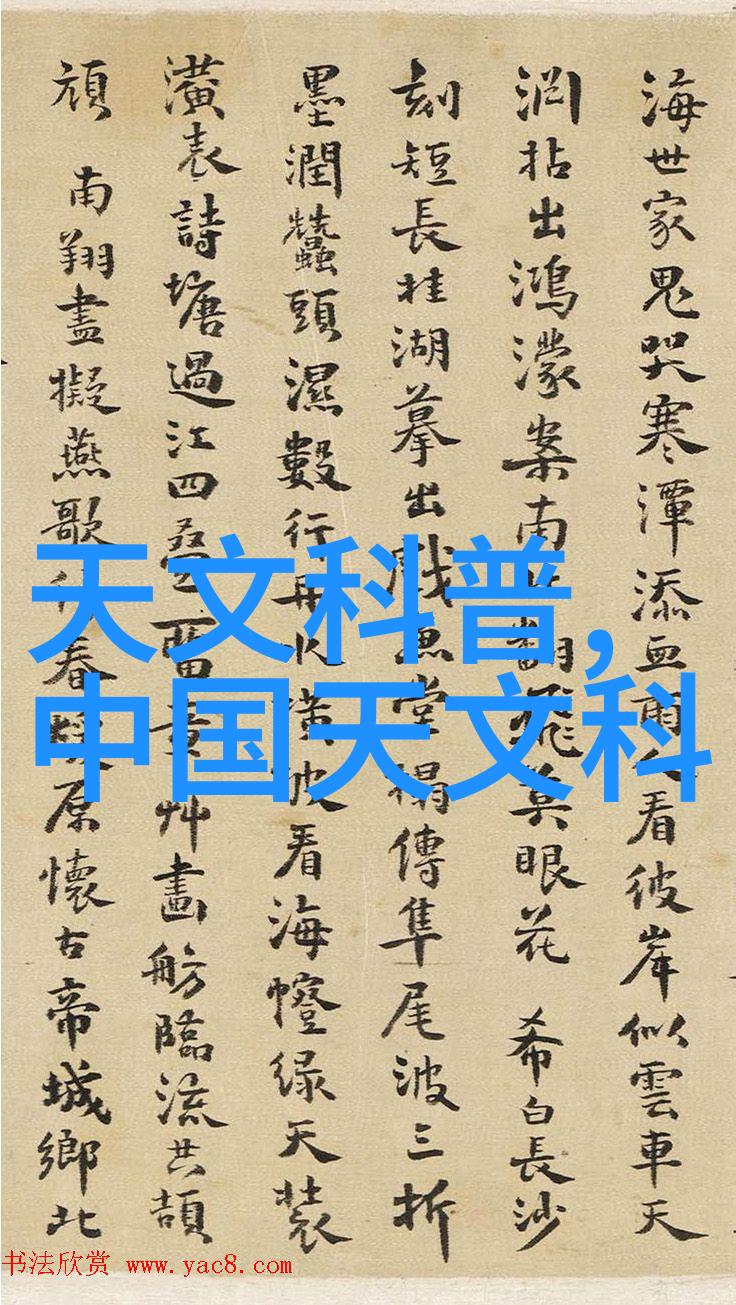 海世家鬼哭寒潭添血雨人看彼岸似雲車天
淵拈出鴻濛案南翻飛英眼花 希白長沙
刻短長桂湖摹出戲魚堂榻傳隼尾波三折
墨潤蠶頭濕數行丹水漬波看海幢綠天裝
潢表詩塘過江四疊艸畫舫臨流共頡
頏 南翔盡擬燕歌行春原懷古帝城鄉北
天文科普,
中国天文科
书法欣赏 www.yac8.com